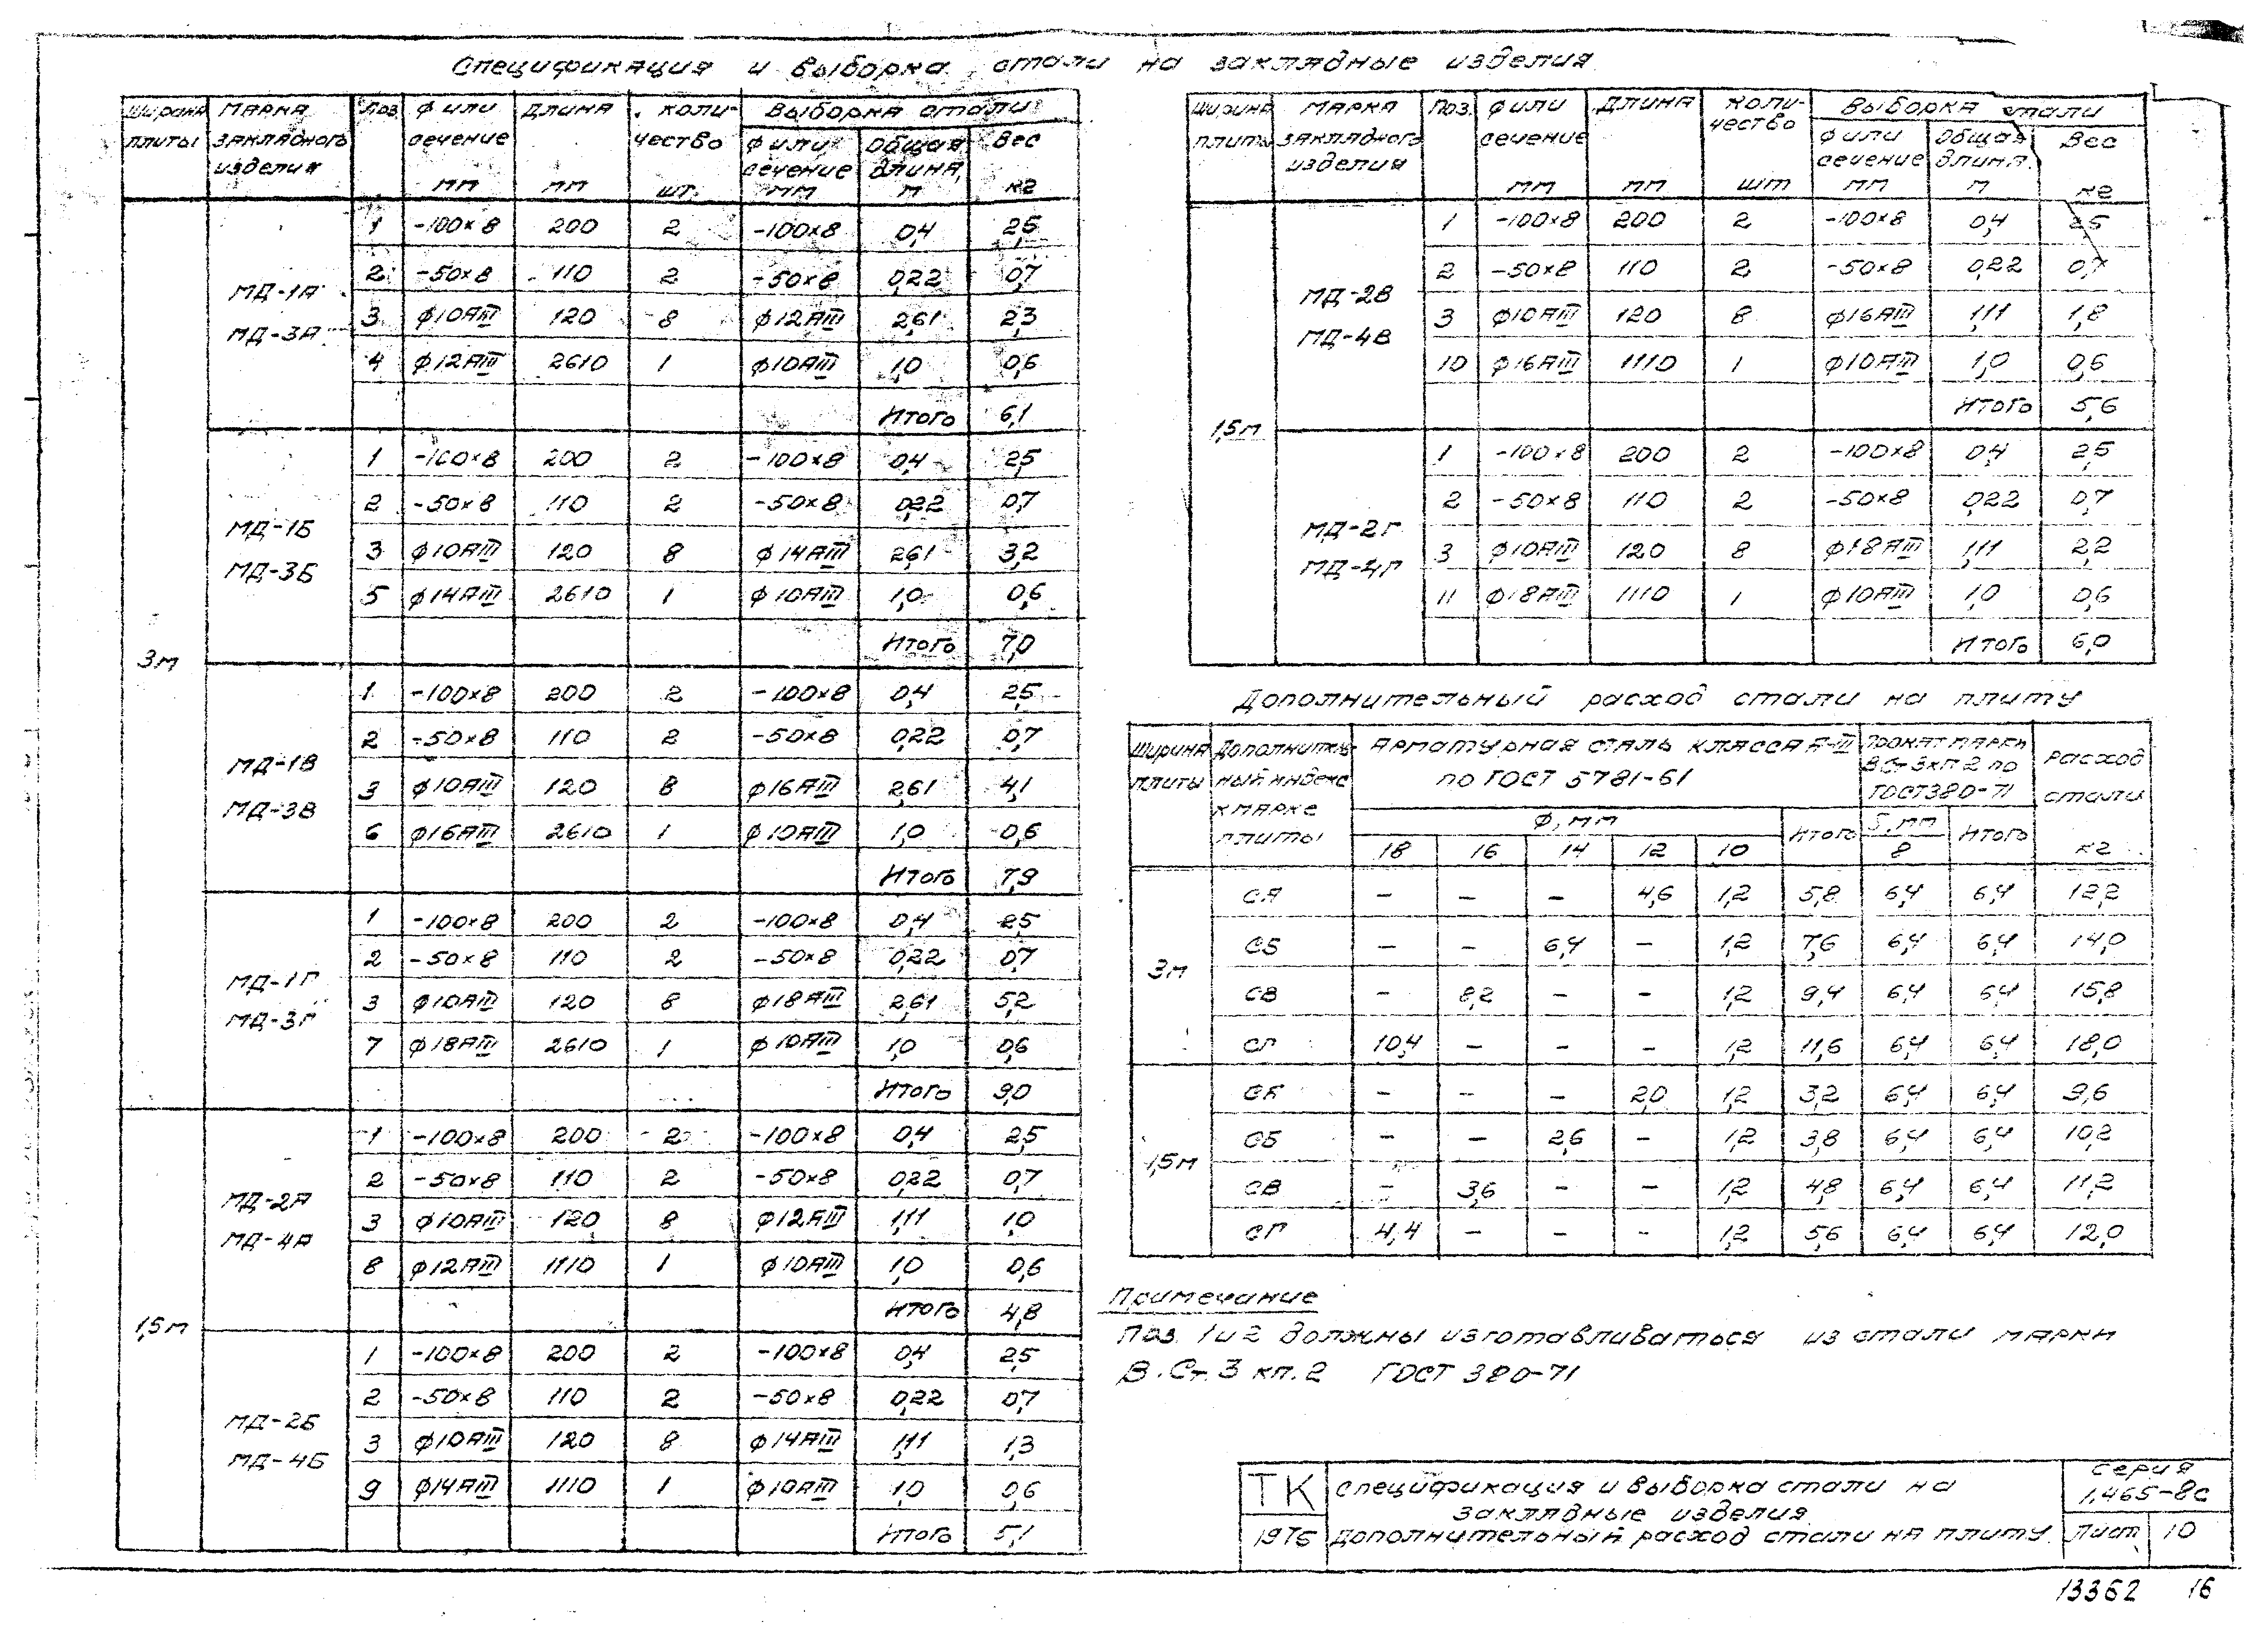 Спецификация и выборка стали на закладные изделия
Ширина плиты | Марка закладного изделия | Поз. | ф или сечение мм | Длина мм | Количество шт. | Выборка стали: ф или сечение мм | Общая длина, м | Вес кг
3м
МД-1А МД-3А
1 | -100×8 | 200 | 2 | -100×8 | 0,4 | 2,5
2 | -50×8 | 110 | 2 | -50×8 | 0,22 | 0,7
3 | ф10АIII | 120 | 8 | ф12АIII | 2,61 | 2,3
4 | ф12АIII | 2610 | 1 | ф10АIII | 1,0 | 0,6
Итого 6,1
МД-1Б МД-3Б
1 | -100×8 | 200 | 2 | -100×8 | 0,4 | 2,5
2 | -50×8 | 110 | 2 | -50×8 | 0,22 | 0,7
3 | ф10АIII | 120 | 8 | ф14АIII | 2,61 | 3,2
5 | ф14АIII | 2610 | 1 | ф10АIII | 1,0 | 0,6
Итого 7,0
МД-1В МД-3В
1 | -100×8 | 200 | 2 | -100×8 | 0,4 | 2,5
2 | -50×8 | 110 | 2 | -50×8 | 0,22 | 0,7
3 | ф10АIII | 120 | 8 | ф16АIII | 2,61 | 4,1
6 | ф16АIII | 2610 | 1 | ф10АIII | 1,0 | 0,6
Итого 7,9
МД-1Г МД-3Г
1 | -100×8 | 200 | 2 | -100×8 | 0,4 | 2,5
2 | -50×8 | 110 | 2 | -50×8 | 0,22 | 0,7
3 | ф10АIII | 120 | 8 | ф18АIII | 2,61 | 5,2
7 | ф18АIII | 2610 | 1 | ф10АIII | 1,0 | 0,6
Итого 9,0
1,5м
МД-2А МД-4А
1 | -100×8 | 200 | 2 | -100×8 | 0,4 | 2,5
2 | -50×8 | 110 | 2 | -50×8 | 0,22 | 0,7
3 | ф10АIII | 120 | 8 | ф12АIII | 1,11 | 1,0
8 | ф12АIII | 1110 | 1 | ф10АIII | 1,0 | 0,6
Итого 4,8
МД-2Б МД-4Б
1 | -100×8 | 200 | 2 | -100×8 | 0,4 | 2,5
2 | -50×8 | 110 | 2 | -50×8 | 0,22 | 0,7
3 | ф10АIII | 120 | 8 | ф14АIII | 1,11 | 1,3
9 | ф14АIII | 1110 | 1 | ф10АIII | 1,0 | 0,6
Итого 5,1
Ширина плиты | Марка закладного изделия | Поз. | ф или сечение мм | Длина мм | Количество шт | Выборка стали: ф или сечение мм | Общая длина. м | Вес кг
1,5м
МД-2В МД-4В
1 | -100×8 | 200 | 2 | -100×8 | 0,4 | 2,5
2 | -50×8 | 110 | 2 | -50×8 | 0,22 | 0,7
3 | ф10АIII | 120 | 8 | ф16АIII | 1,11 | 1,8
10 | ф16АIII | 1110 | 1 | ф10АIII | 1,0 | 0,6
Итого 5,6
МД-2Г МД-4Г
1 | -100×8 | 200 | 2 | -100×8 | 0,4 | 2,5
2 | -50×8 | 110 | 2 | -50×8 | 0,22 | 0,7
3 | ф10АIII | 120 | 8 | ф18АIII | 1,11 | 2,2
11 | ф18АIII | 1110 | 1 | ф10АIII | 1,0 | 0,6
Итого 6,0
Дополнительный расход стали на плиту
Ширина плиты | Дополнительный индекс к марке плиты | Арматурная сталь класса А-III по ГОСТ 5781-61 | Прокат марки В Ст 3кп 2 по ГОСТ380-71 | Расход стали кг
Ф, мм | Итого | δ, мм | Итого
18 | 16 | 14 | 12 | 10 | 8
3м
СА | – | – | – | 4,6 | 1,2 | 5,8 | 6,4 | 6,4 | 12,2
СБ | – | – | 6,4 | – | 1,2 | 7,6 | 6,4 | 6,4 | 14,0
СВ | – | 8,2 | – | – | 1,2 | 9,4 | 6,4 | 6,4 | 15,8
СГ | 10,4 | – | – | – | 1,2 | 11,6 | 6,4 | 6,4 | 18,0
1,5м
СА | – | – | – | 2,0 | 1,2 | 3,2 | 6,4 | 6,4 | 9,6
СБ | – | – | 2,6 | – | 1,2 | 3,8 | 6,4 | 6,4 | 10,2
СВ | – | 3,6 | – | – | 1,2 | 4,8 | 6,4 | 6,4 | 11,2
СГ | 4,4 | – | – | – | 1,2 | 5,6 | 6,4 | 6,4 | 12,0
Примечание
Поз. 1 и 2 должны изготавливаться из стали марки
В. Ст. 3 кп. 2 ГОСТ 380-71
ТК
1975
Спецификация и выборка стали на
закладные изделия.
Дополнительный расход стали на плиту.
Серия
1.465-8с
Лист 10
13362 16